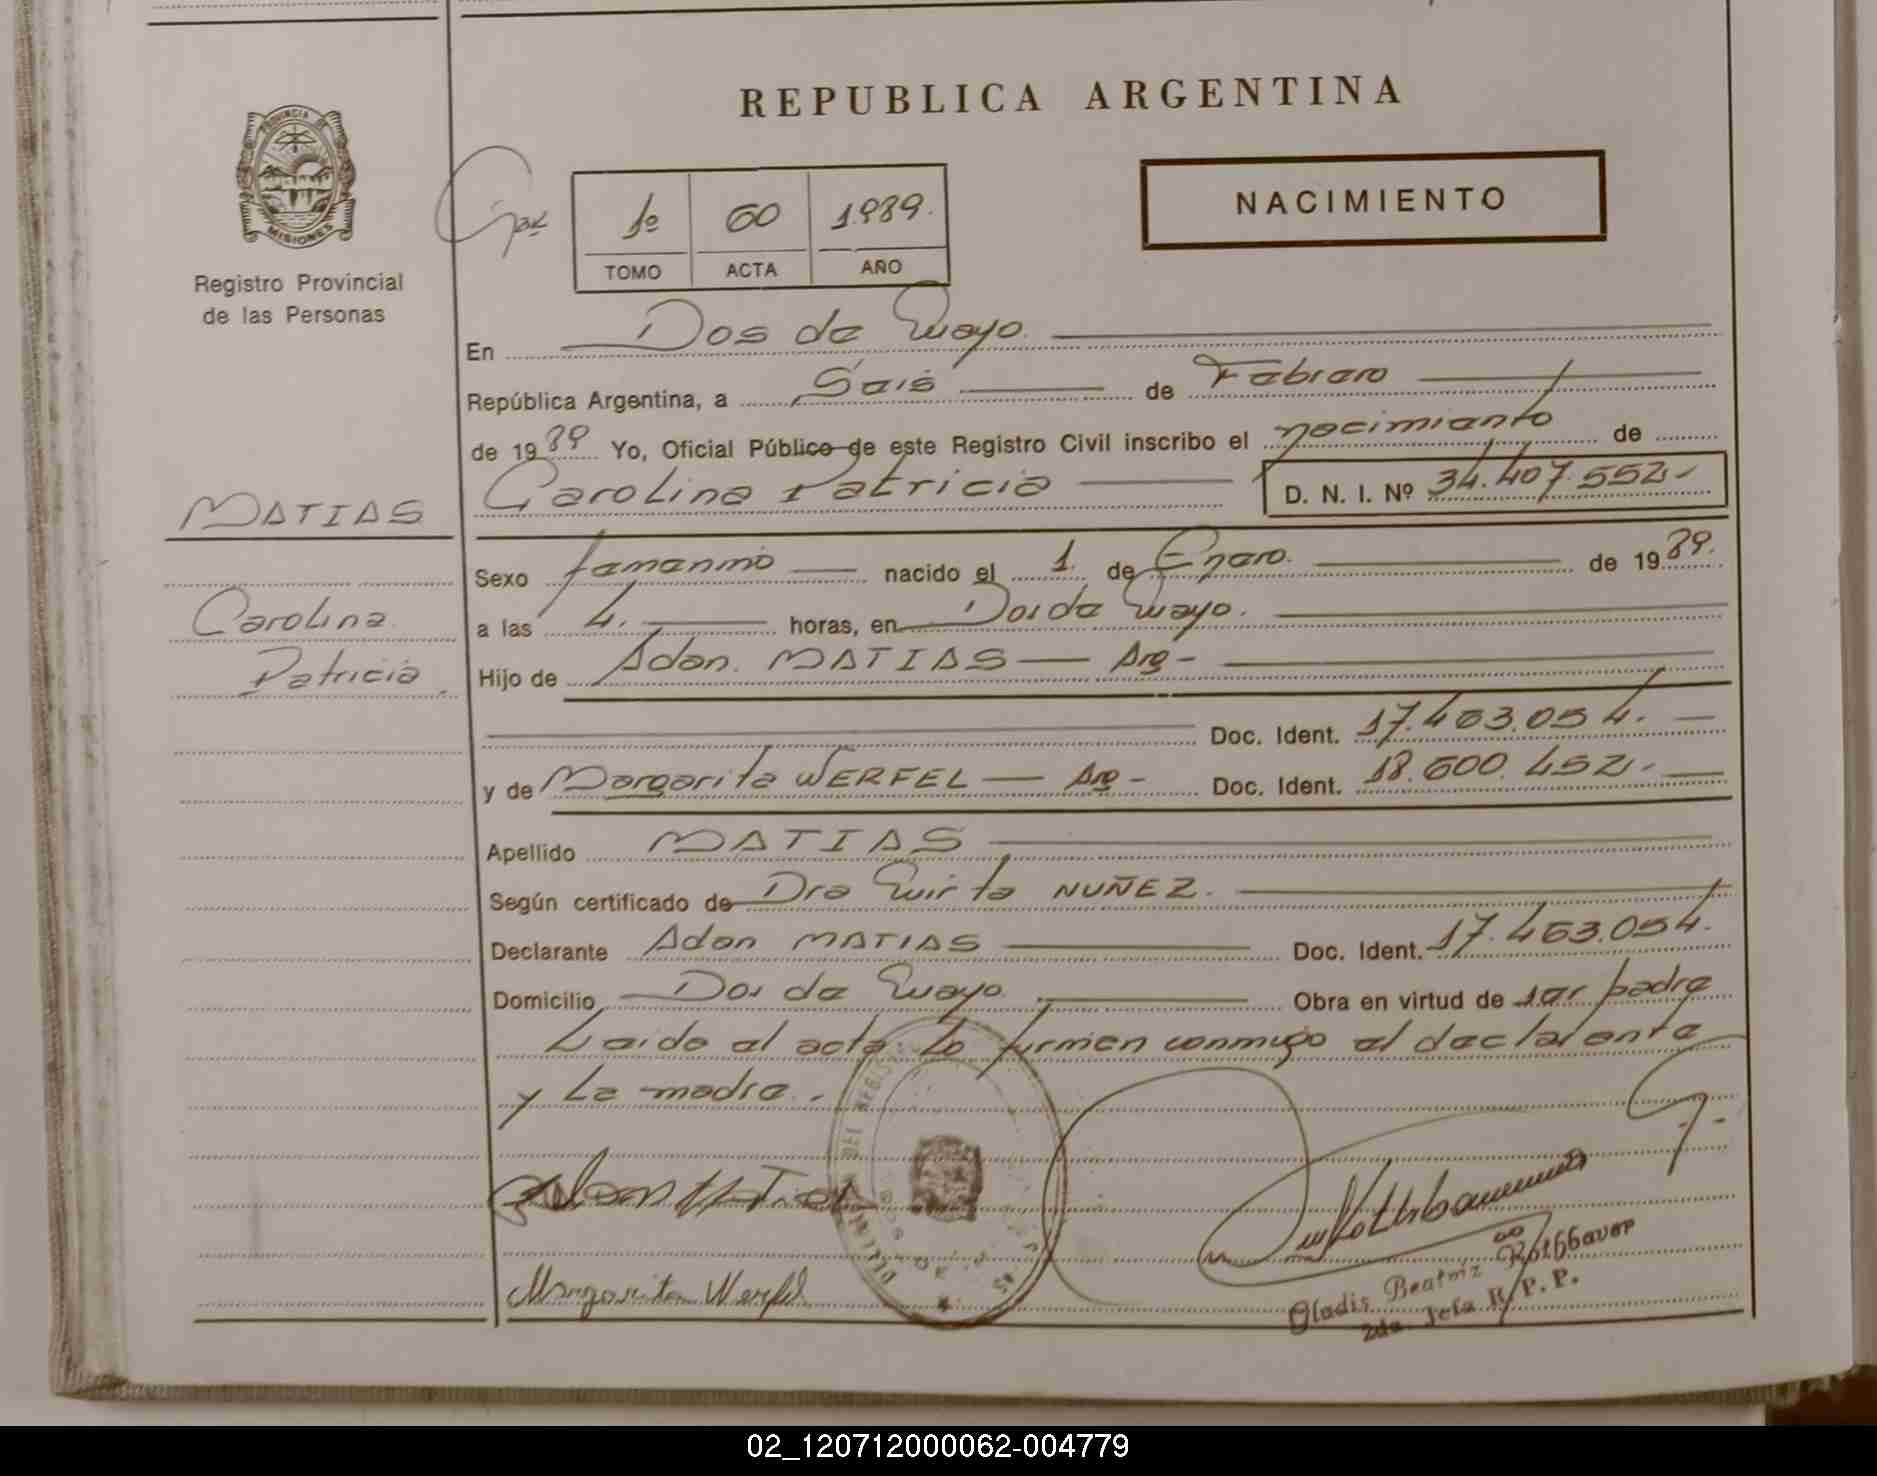 REPUBLICA ARGENTINA
PROVINCIA DE
MISIONES
Registro Provincial
de las Personas
1º 60 1989.
TOMO ACTA AÑO
NACIMIENTO
En Dos de Mayo.
República Argentina, a Seis de Febrero
de 1989 Yo, Oficial Público de este Registro Civil inscribo el nacimiento de
Carolina Patricia D. N. I. Nº 34.407.552-
MATIAS
Carolina
Patricia
Sexo femenino nacido el 1 de Enero. de 1989.
a las 4. horas, en Dos de Mayo.
Hijo de Adan. MATIAS — Arg -
Doc. Ident. 17.463.054. —
y de Margarita WERFEL — Arg - Doc. Ident. 18.600.452. —
Apellido MATIAS
Según certificado de Dra Mirta NUÑEZ.
Declarante Adan MATIAS Doc. Ident. 17.463.054.
Domicilio Dos de Mayo. Obra en virtud de ser padre
Leida el acta, la firman conmigo el declarante
y la madre.-
Margarita Werfel
Gladis Beatriz Rothbauer
2da. Jefa R.P.P.
02_120712000062-004779